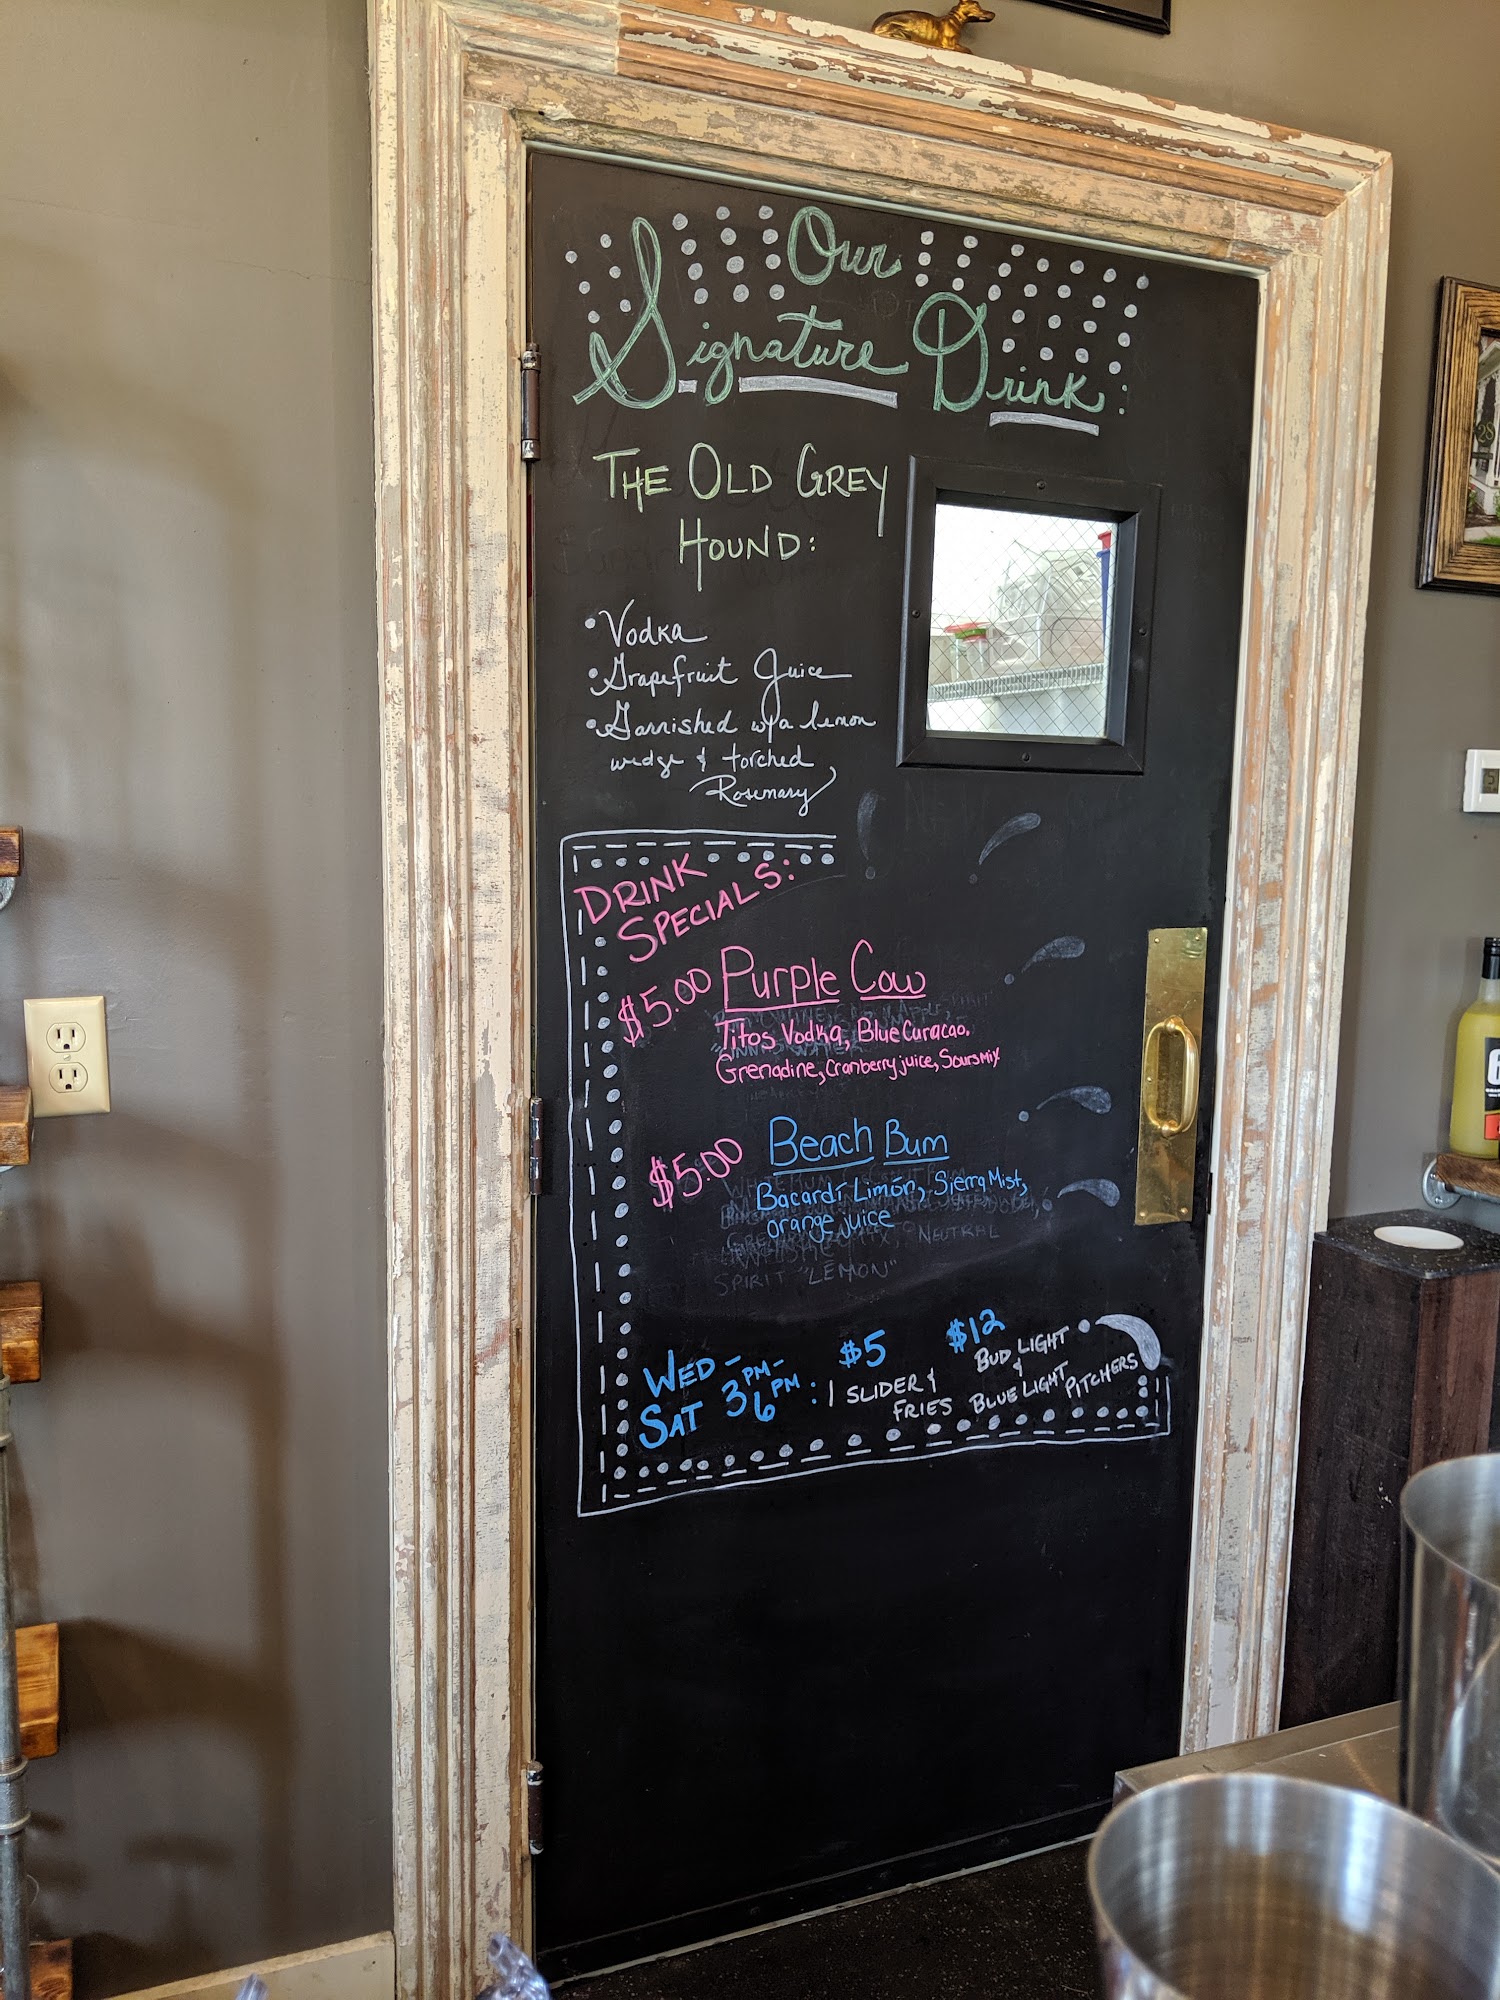 Our
Signature Drink:
THE OLD GREY
HOUND:
• Vodka
• Grapefruit Juice
• Garnished w/a lemon
wedge & torched
Rosemary
DRINK
SPECIALS:
$5.00 Purple Cow
Titos Vodka, Blue Curacao,
Grenadine, Cranberry juice, Sours Mix
$5.00 Beach Bum
Bacardí Limón, Sierra Mist,
orange juice
NEUTRAL
SPIRIT "LEMON"
WED - SAT 3PM - 6PM :
$5
1 SLIDER &
FRIES
$12
BUD LIGHT
&
BLUE LIGHT PITCHERS